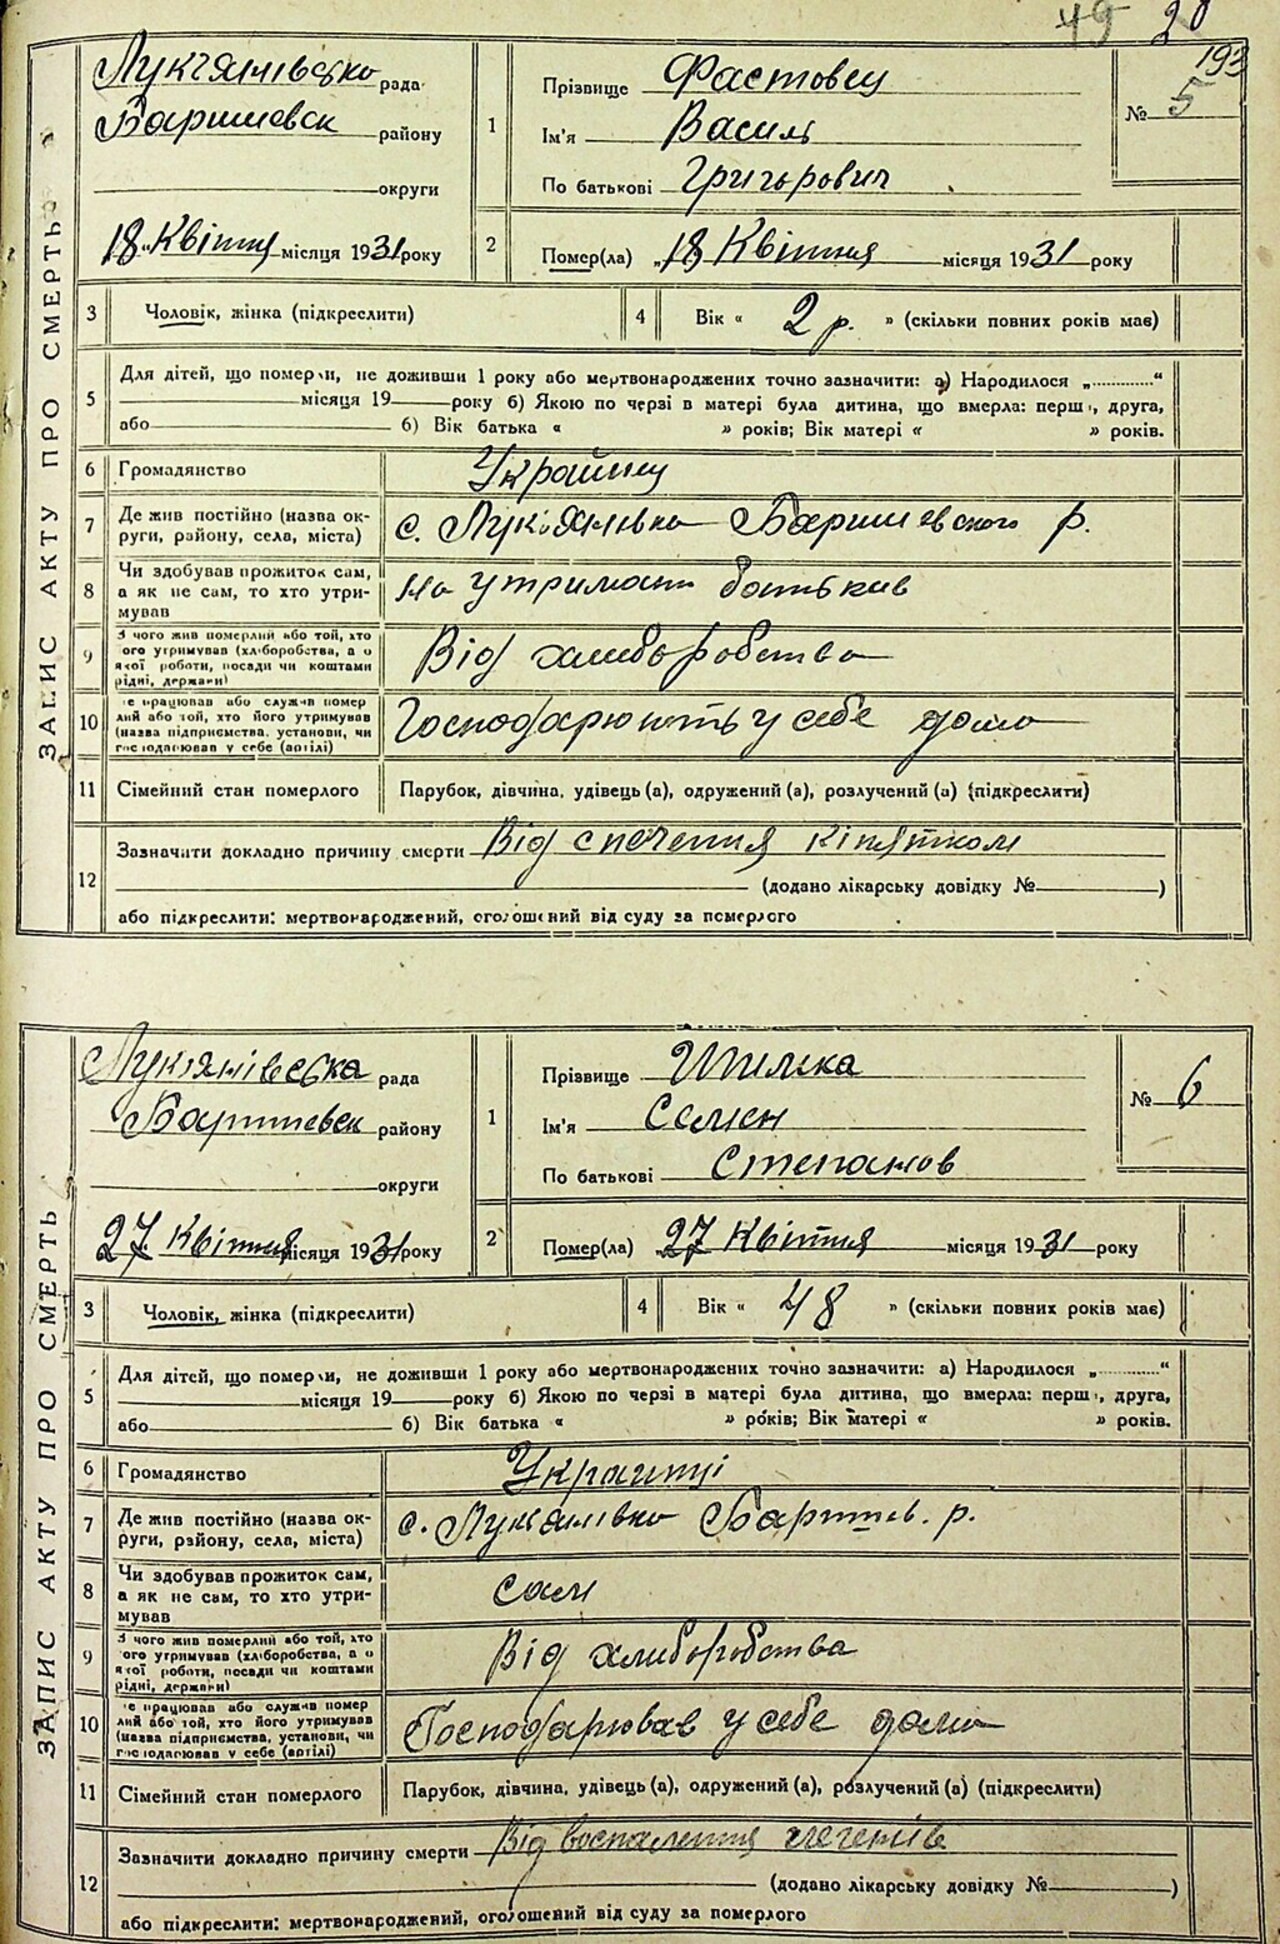 49 20
193
ЗАПИС АКТУ ПРО СМЕРТЬ
Лукʼянівсько рада
Баришевск району
округи
18 Квітня місяця 1931 року
1
Прізвище Фастовец
Імʼя Василь
По батькові Григорович
№ 5
2
Помер(ла) „18 Квітня місяця 1931 року
3 Чоловік, жінка (підкреслити)
4 Вік « 2 р. » (скільки повних років має)
5 Для дітей, що померли, не доживши 1 року або мертвонароджених точно зазначити: а) Народилося „.............“
місяця 19 року б) Якою по черзі в матері була дитина, що вмерла: перш , друга,
або б) Вік батька « » років; Вік матері « » років.
6 Громадянство Украйинец
7 Де жив постійно (назва ок-
руги, району, села, міста) с. Лукіянівка Баришевского р.
8 Чи здобував прожиток сам,
а як не сам, то хто утри-
мував На утримані батьків
9 З чого жив померлий або той, хто
ого утримував (хліборобства, а о
якої роботи, посади чи коштами
рідні, держави) Від хлиборобства
10 е працював або служив помер
лий або той, хто його утримував
(назва підприємства, установи, чи
господарював у себе (артілі) Господарюють у себе дома
11 Сімейний стан померлого Парубок, дівчина, удівець (а), одружений (а), розлучений (а) (підкреслити)
12 Зазначити докладно причину смерти Від спечення кіпятком
(додано лікарську довідку № )
або підкреслити: мертвонароджений, оголошений від суду за померлого
ЗАПИС АКТУ ПРО СМЕРТЬ
Лукʼянівська рада
Баришевск району
округи
27 Квітня місяця 1931 року
1
Прізвище Шпилька
Імʼя Семен
По батькові Степанов
№ 6
2
Помер(ла) „27 Квітня місяця 1931 року
3 Чоловік, жінка (підкреслити)
4 Вік « 48 » (скільки повних років має)
5 Для дітей, що померли, не доживши 1 року або мертвонароджених точно зазначити: а) Народилося „.............“
місяця 19 року б) Якою по черзі в матері була дитина, що вмерла: перш , друга,
або б) Вік батька « » років; Вік матері « » років.
6 Громадянство
7 Де жив постійно (назва ок-
руги, району, села, міста) с. Лукʼянівка Баришев. р.
8 Чи здобував прожиток сам,
а як не сам, то хто утри-
мував сам
9 З чого жив померлий або той, хто
ого утримував (хліборобства, а о
якої роботи, посади чи коштами
рідні, держави) Від хлиборобства
10 е працював або служив помер
лий або той, хто його утримував
(назва підприємства, установи, чи
господарював у себе (артілі) Господарював у себе дома
11 Сімейний стан померлого Парубок, дівчина, удівець (а), одружений (а), розлучений (а) (підкреслити)
12 Зазначити докладно причину смерти Від воспалення легенів
(додано лікарську довідку № )
або підкреслити: мертвонароджений, оголошений від суду за померлого